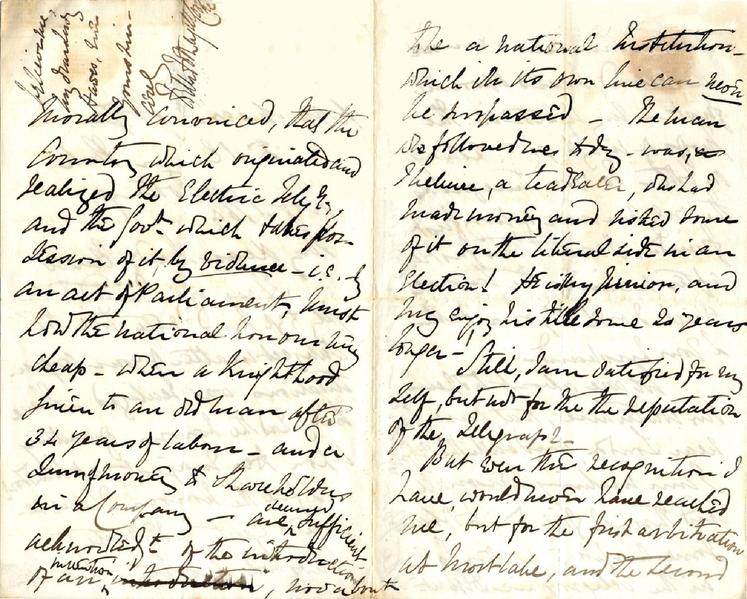 morally convinced, that the
Country which originated and
realized the Electric Telegh,
and the Govt which takes pos-
session of it, by violence - i.e. by
an act of Parliament, must
hold the national honour very
cheap - when a Knighthood
given to an old man after
34 years of labour - and a
sum of money to Shareholders
in a Company - are deemed sufficient
acknowledgt of the introduction
of an invention introduction, now about
to be a national Institution -
which in its own line can never
be surpassed - The man
who followed me to day - was, as
I believe, a tradesman, who had
made money and risked some
of it on the liberal side in an
Election! He is my junior, and
may enjoy his title some 20 years
longer -
Still, I am satisfied for my
self, but not for the the reputation
of the Telegraph -
But even the recognition I
have, would never have reached
me, but for the first arbitration
at Mortlake, and the second
I believe me
my dear
Yours